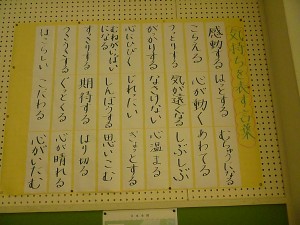 気持ちを表す言葉
感動する はっとする むちゅうになる
こらえる 心が動く あわてる
うっとりする 気が遠くなる しぶしぶ
がっかりする なさけない 心温まる
心がひく じれったい ぎょっとする
むねがいっぱいになる しんぼうする 思いこむ
すっきりする 期待する はり切る
うっとうしい ぐっとくる 心が晴れる
ほこらしい こだわる 心がいたむ